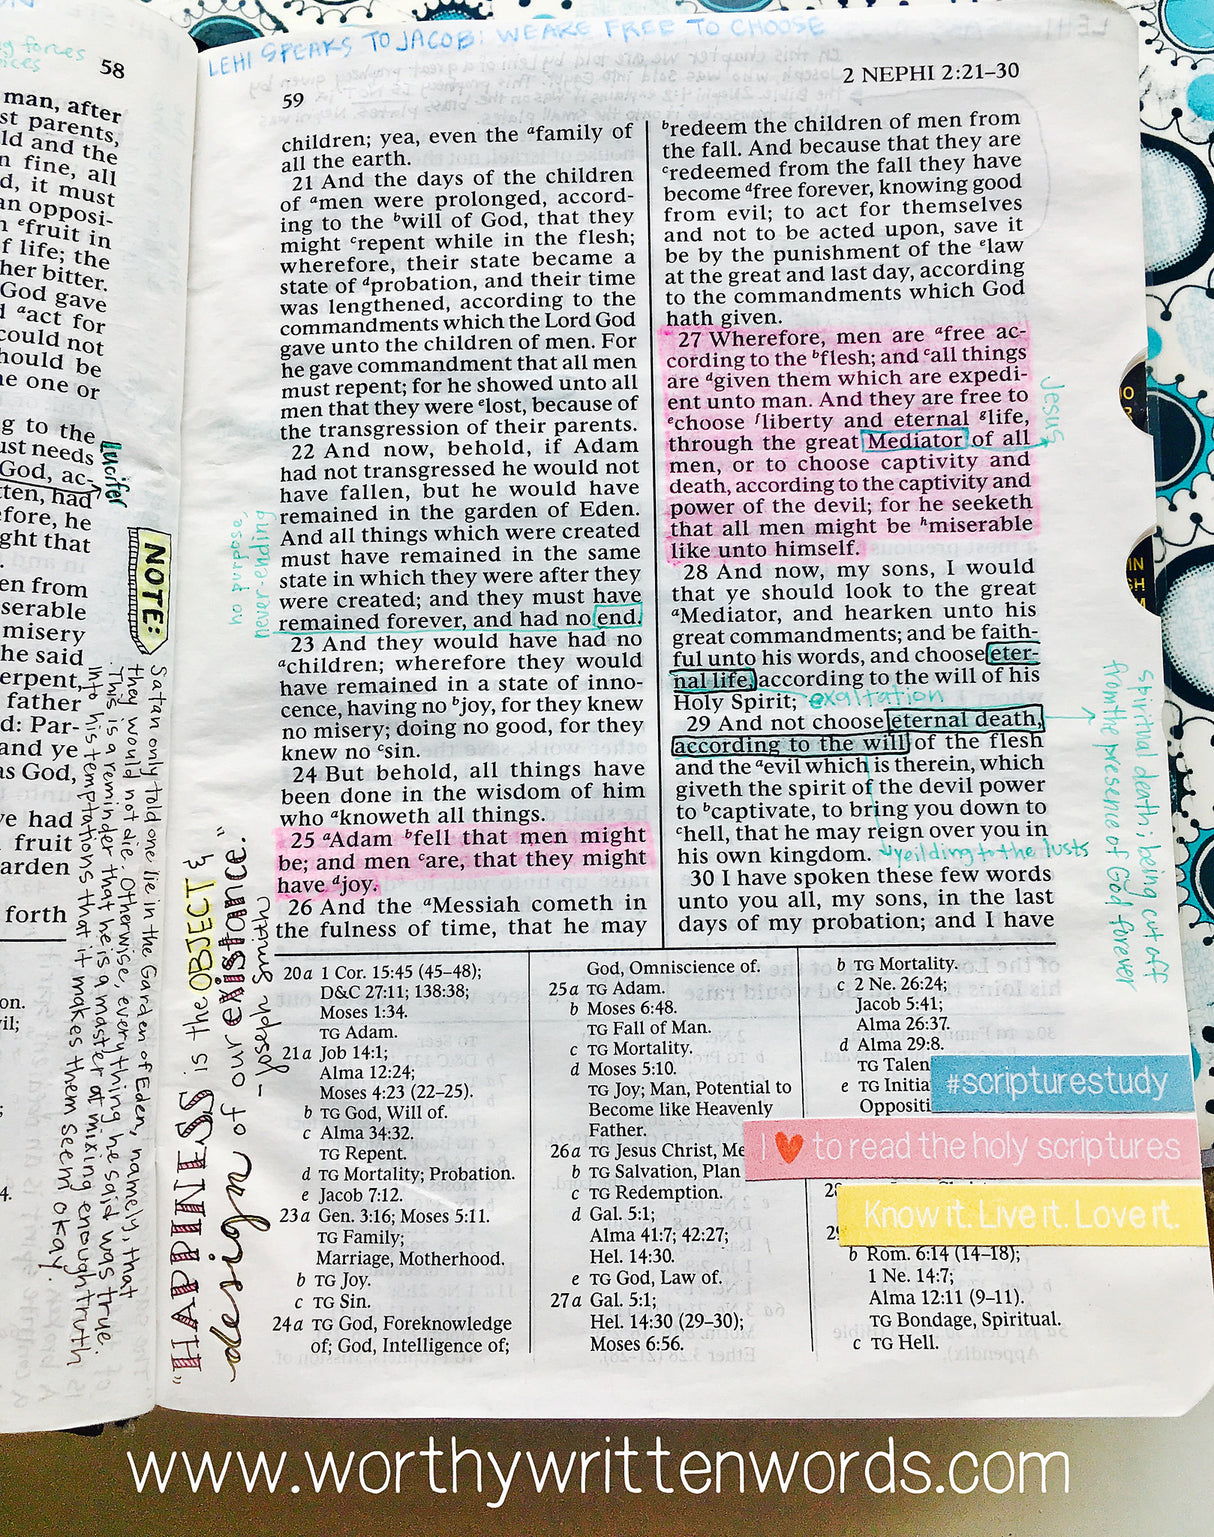 58
man, after
st parents,
ld and the
n fine, all
d, it must
an opposi-
n ᵉfruit in
f life; the
her bitter.
God gave
ᵃact for
could not
hould be
ne one or
g to the
ust needs
God, ac-
tten, had
efore, he
ght that
en from
serable
misery
he said
erpent,
father
d: Par-
and ye
as God,
ve had
fruit
arden
forth
Lucifer
NOTE:
Satan only told one lie in the Garden of Eden, namely, that
they would not die. Otherwise, everything he said was true.
This is a reminder that he is a master at mixing enough truth
into his temptations that it makes them seem okay.
"HAPPINESS is the OBJECT &
design of our existance."
- Joseph Smith
LEHI SPEAKS TO JACOB: WE ARE FREE TO CHOOSE
59
2 NEPHI 2:21–30
children; yea, even the ᵃfamily of
all the earth.
21 And the days of the children
of ᵃmen were prolonged, accord-
ing to the ᵇwill of God, that they
might ᶜrepent while in the flesh;
wherefore, their state became a
state of ᵈprobation, and their time
was lengthened, according to the
commandments which the Lord God
gave unto the children of men. For
he gave commandment that all men
must repent; for he showed unto all
men that they were ᵉlost, because of
the transgression of their parents.
22 And now, behold, if Adam
had not transgressed he would not
have fallen, but he would have
remained in the garden of Eden.
And all things which were created
must have remained in the same
state in which they were after they
were created; and they must have
remained forever, and had no end.
no purpose,
never-ending
23 And they would have had no
ᵃchildren; wherefore they would
have remained in a state of inno-
cence, having no ᵇjoy, for they knew
no misery; doing no good, for they
knew no ᶜsin.
24 But behold, all things have
been done in the wisdom of him
who ᵃknoweth all things.
25 ᵃAdam ᵇfell that men might
be; and men ᶜare, that they might
have ᵈjoy.
26 And the ᵃMessiah cometh in
the fulness of time, that he may
ᵇredeem the children of men from
the fall. And because that they are
ᶜredeemed from the fall they have
become ᵈfree forever, knowing good
from evil; to act for themselves
and not to be acted upon, save it
be by the punishment of the ᵉlaw
at the great and last day, according
to the commandments which God
hath given.
27 Wherefore, men are ᵃfree ac-
cording to the ᵇflesh; and ᶜall things
are ᵈgiven them which are expedi-
ent unto man. And they are free to
ᵉchoose ᶠliberty and eternal ᵍlife,
through the great Mediator of all
men, or to choose captivity and
death, according to the captivity and
power of the devil; for he seeketh
that all men might be ʰmiserable
like unto himself.
Jesus
28 And now, my sons, I would
that ye should look to the great
ᵃMediator, and hearken unto his
great commandments; and be faith-
ful unto his words, and choose eter-
nal life, according to the will of his
Holy Spirit;
exaltation
29 And not choose eternal death,
according to the will of the flesh
and the ᵃevil which is therein, which
giveth the spirit of the devil power
to ᵇcaptivate, to bring you down to
ᶜhell, that he may reign over you in
his own kingdom.
yeilding to the lusts
spiritual death; being cut off
from the presence of God forever
30 I have spoken these few words
unto you all, my sons, in the last
days of my probation; and I have
20a 1 Cor. 15:45 (45–48);
D&C 27:11; 138:38;
Moses 1:34.
TG Adam.
21a Job 14:1;
Alma 12:24;
Moses 4:23 (22–25).
b TG God, Will of.
c Alma 34:32.
TG Repent.
d TG Mortality; Probation.
e Jacob 7:12.
23a Gen. 3:16; Moses 5:11.
TG Family;
Marriage, Motherhood.
b TG Joy.
c TG Sin.
24a TG God, Foreknowledge
of; God, Intelligence of;
God, Omniscience of.
25a TG Adam.
b Moses 6:48.
TG Fall of Man.
c TG Mortality.
d Moses 5:10.
TG Joy; Man, Potential to
Become like Heavenly
Father.
26a TG Jesus Christ, Me
b TG Salvation, Plan
c TG Redemption.
d Gal. 5:1;
Alma 41:7; 42:27;
Hel. 14:30.
e TG God, Law of.
27a Gal. 5:1;
Hel. 14:30 (29–30);
Moses 6:56.
b TG Mortality.
c 2 Ne. 26:24;
Jacob 5:41;
Alma 26:37.
d Alma 29:8.
TG Talen
e TG Initia
Oppositi
b Rom. 6:14 (14–18);
1 Ne. 14:7;
Alma 12:11 (9–11).
TG Bondage, Spiritual.
c TG Hell.
#scripturestudy
I ♥ to read the holy scriptures
Know it. Live it. Love it.
www.worthywrittenwords.com